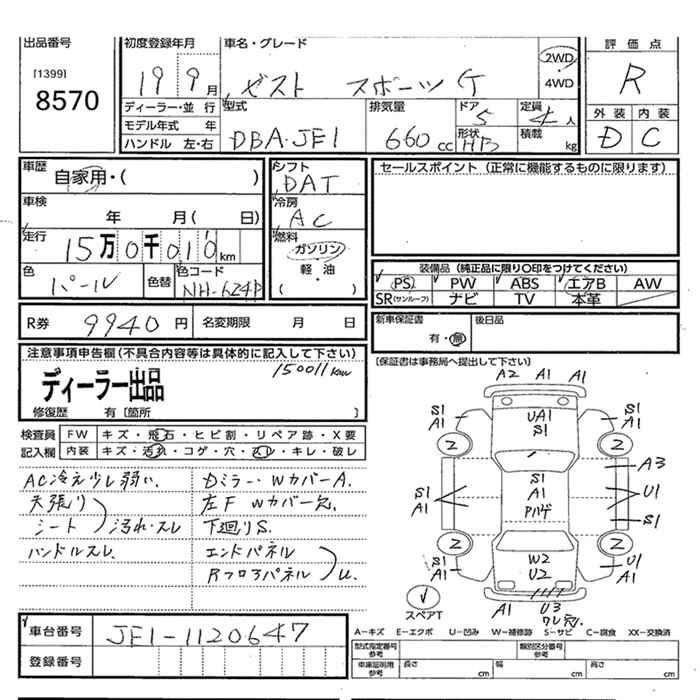 出品番号
[1399]
8570
初度登録年月
19 9月
車名・グレード
ゼスト スポーツ G
2WD
・
4WD
評価点
R
外装 内装
D C
ディーラー・並行
モデル年式 年
ハンドル 左・右
型式
DBA-JE1
排気量
660 cc
ドア
5
形状
HB
定員
4 人
積載
kg
車歴
自家用・( )
車検
年 月( 日)
走行
15万0千010km
色
パール
色替
色コード
NH-624P
シフト
DAT
冷房
AC
燃料
ガソリン
軽・油
( )
セールスポイント (正常に機能するものに限ります)
装備品 (純正品に限り○印をつけてください)
PS PW ABS エアB AW
SR(サンルーフ) ナビ TV 本革
R券 9940 円 名変期限 月 日
新車保証書
有・無
後日品
注意事項申告欄(不具合内容等は具体的に記入して下さい)
150011km
ディーラー出品
修復歴 有〔箇所 〕
〔保証書は事務局へ提出して下さい〕
検査員 FW キズ・飛石・ヒビ割・リペア跡・X要
記入欄 内装 キズ・汚れ・コゲ・穴・スレ・キレ・破レ
AC冷え少し弱い. Dミラー・WカバーA.
天張り 左F Wカバー欠.
シート 汚れ・スレ 下廻りS.
ハンドルスレ エンドパネル
Rフロアパネル U.
A2 A1 A1
S1 A1 UA1 S1 S1 A1
2 2
A3
S1 A1 S1 A1 Pハゲ U1
S1
2 2
W2 U2 U1 A1
S1 A1
スペアT
A1 U3
ワレ
A-キズ E-エクボ U-凹み W-補修跡 S-サビ C-腐食 XX-交換済
車台番号 JE1-1120647
登録番号
型式指定番号 参考
類別区分番号 参考
車庫証明用 参考
長さ cm 幅 cm 高さ cm